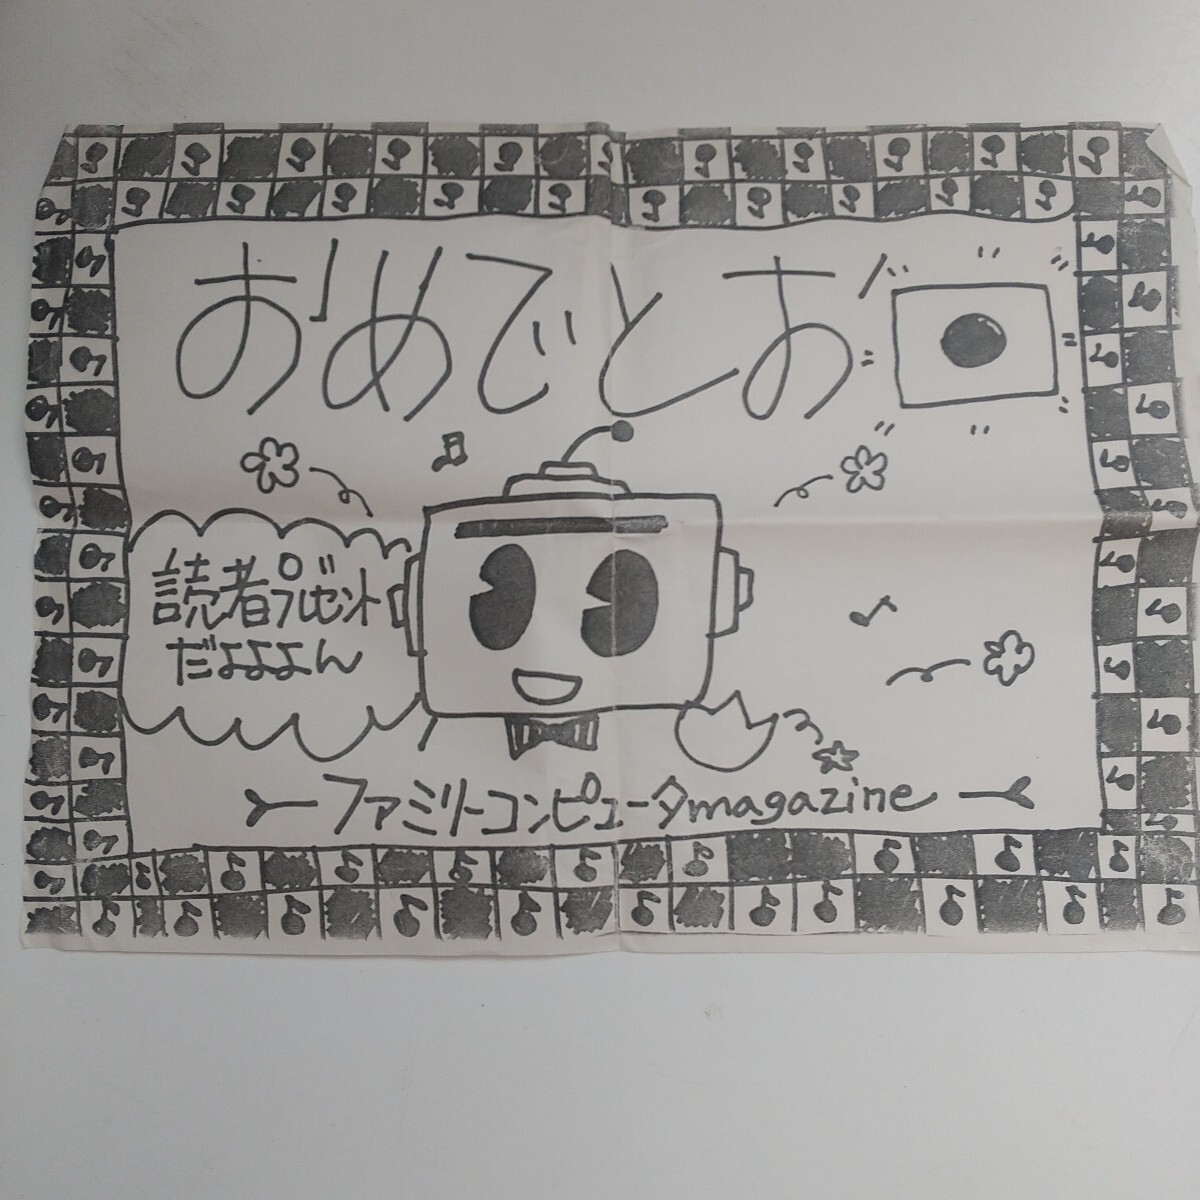 おめでとお
読者プレゼント
だよよよん
ファミリーコンピュータmagazine